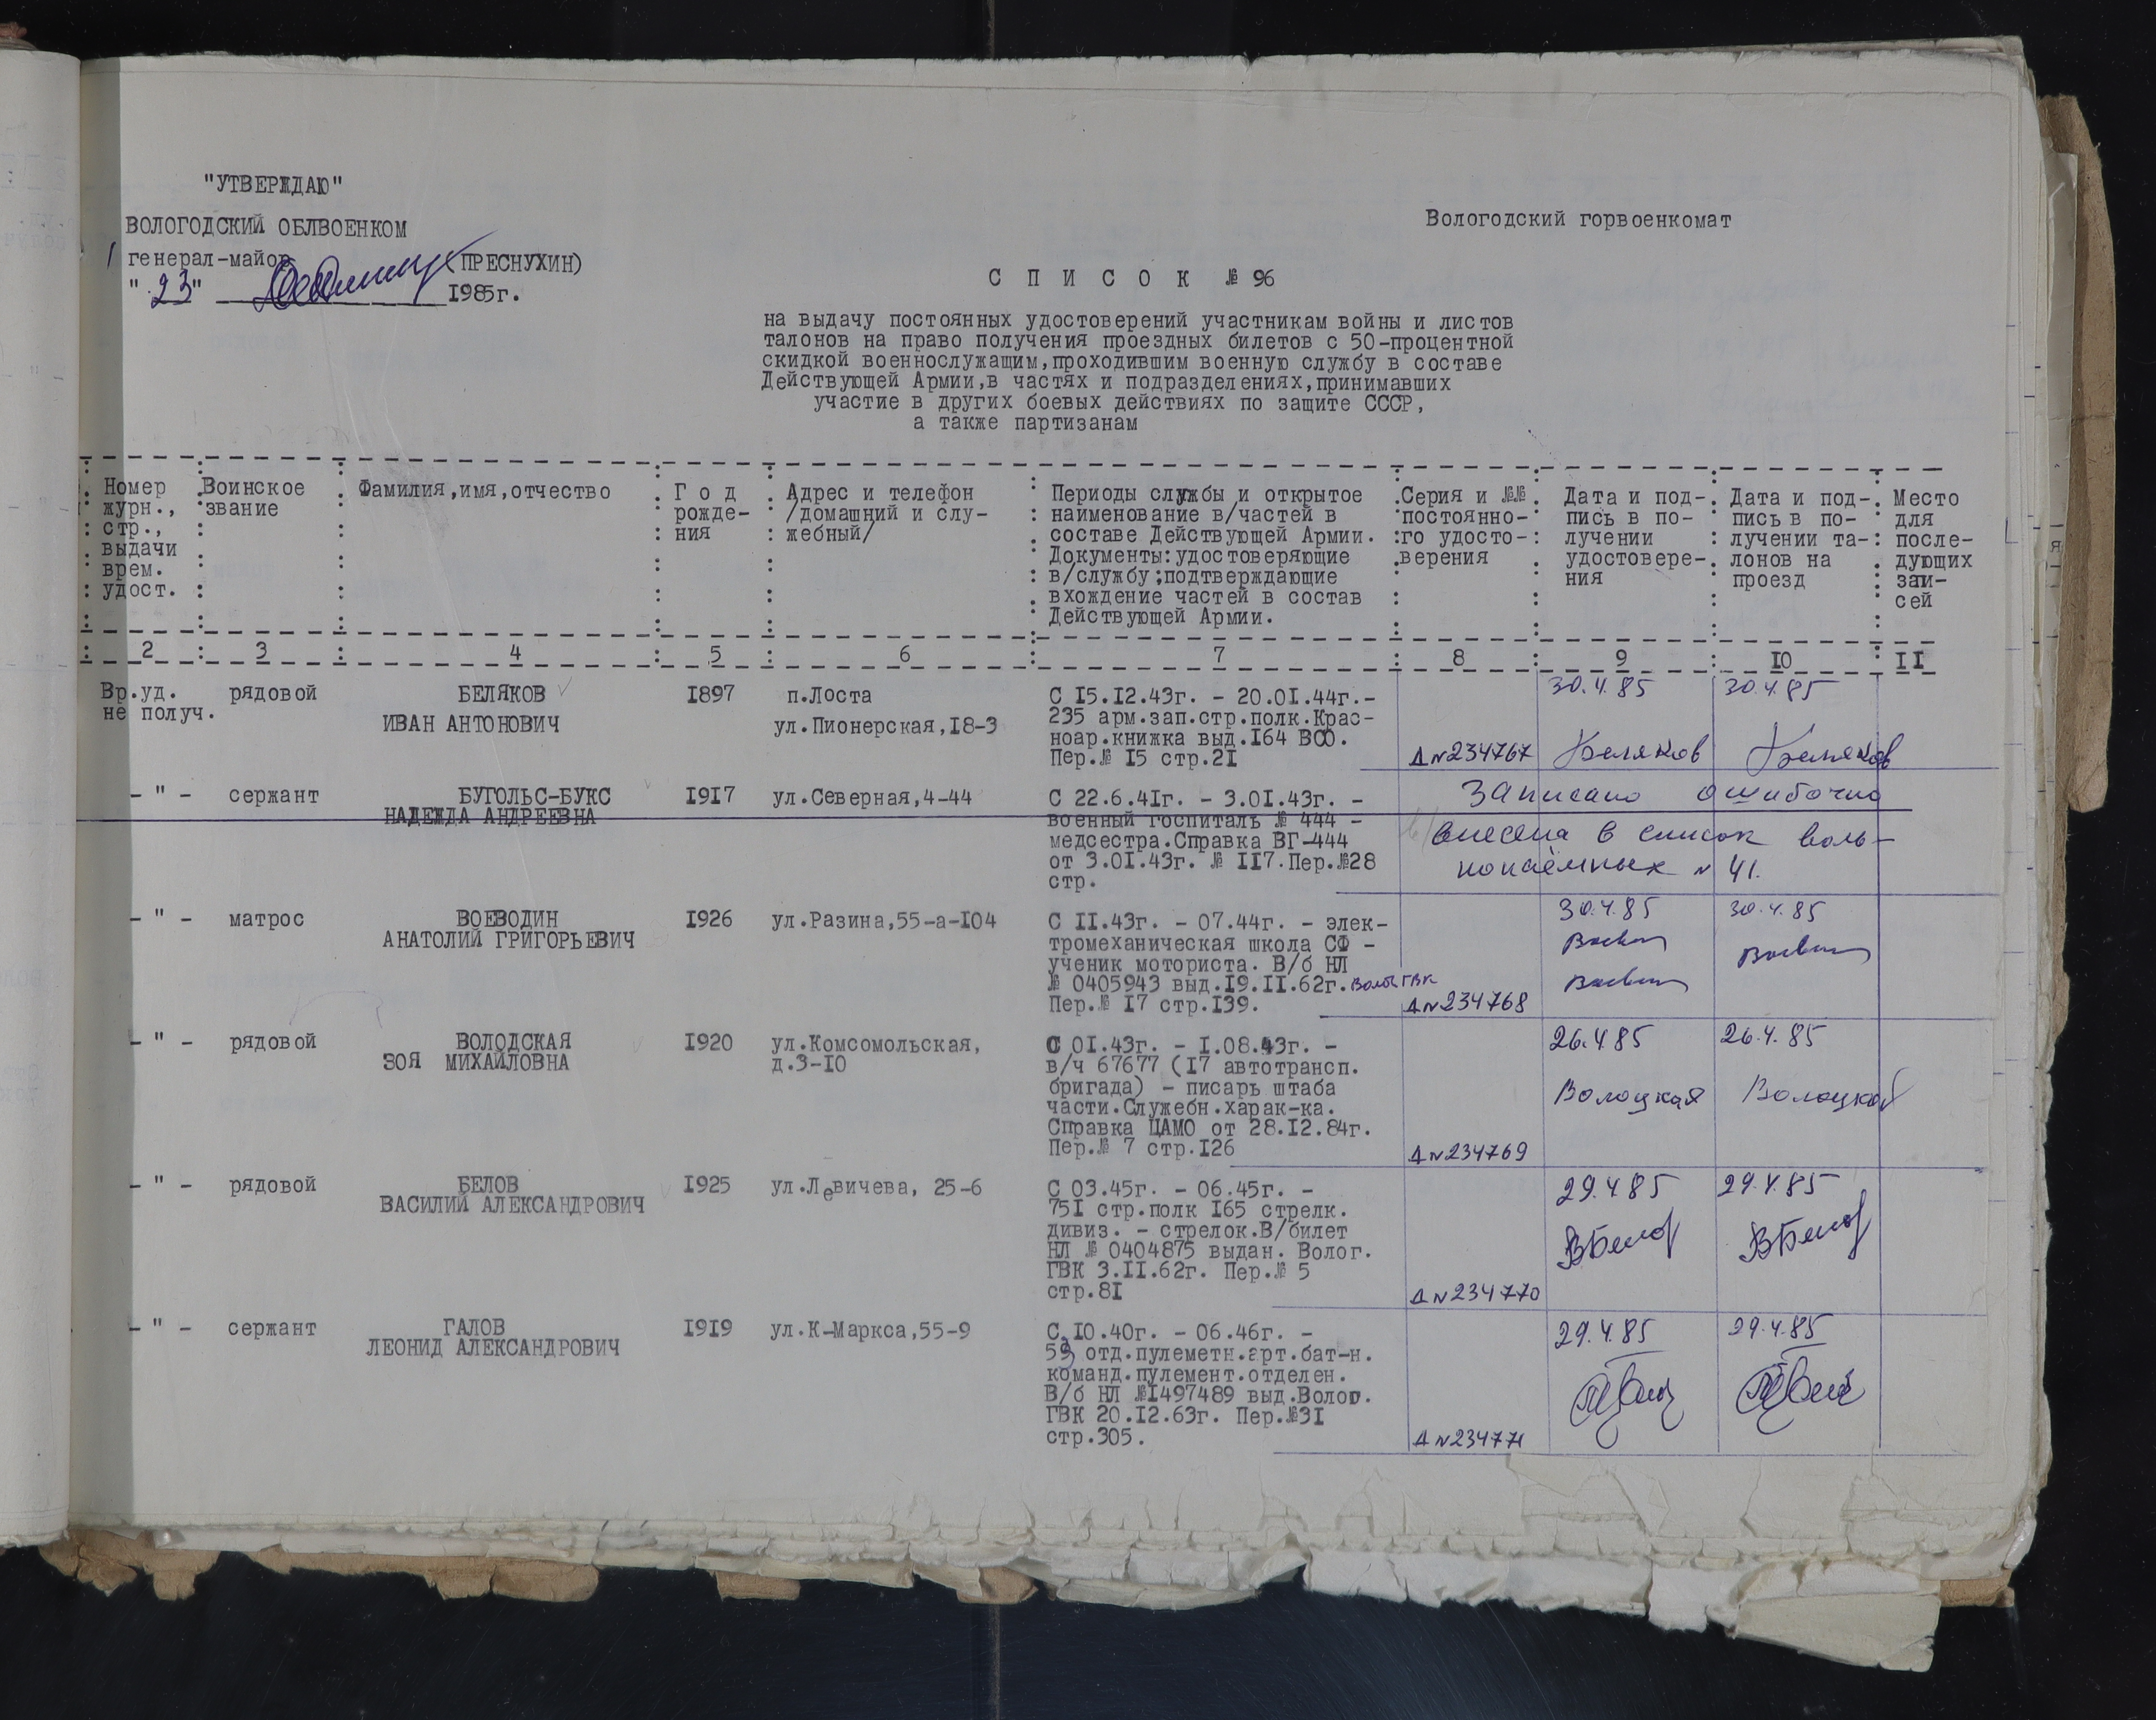 "УТВЕРЖДАЮ"
ВОЛОГОДСКИЙ ОБЛВОЕНКОМ
генерал-майор (ПРЕСНУХИН)
"23" 1985г.
Вологодский горвоенкомат
С П И С О К № 96
на выдачу постоянных удостоверений участникам войны и листов
талонов на право получения проездных билетов с 50-процентной
скидкой военнослужащим,проходившим военную службу в составе
Действующей Армии,в частях и подразделениях,принимавших
участие в других боевых действиях по защите СССР,
а также партизанам
Номер
журн.,
стр.,
выдачи
врем.
удост.
Воинское
звание
Фамилия,имя,отчество
Г о д
рожде-
ния
Адрес и телефон
/домашний и слу-
жебный/
Периоды службы и открытое
наименование в/частей в
составе Действующей Армии.
Документы:удостоверяющие
в/службу;подтверждающие
вхождение частей в состав
Действующей Армии.
Серия и №№
постоянно-
го удосто-
верения
Дата и под-
пись в по-
лучении
удостовере-
ния
Дата и под-
пись в по-
лучении та-
лонов на
проезд
Место
для
после-
дующих
запи-
сей
2 3 4 5 6 7 8 9 10 11
Вр.уд.
не получ.
рядовой
БЕЛЯКОВ
ИВАН АНТОНОВИЧ
1897
п.Лоста
ул.Пионерская,18-3
С 15.12.43г. - 20.01.44г.-
235 арм.зап.стр.полк.Крас-
ноар.книжка выд.164 ВСО.
Пер.№ 15 стр.21
Д №234767
30.4.85
Беляков
30.4.85
Беляков
- " -
сержант
БУГОЛЬС-БУКС
НАДЕЖДА АНДРЕЕВНА
1917
ул.Северная,4-44
С 22.6.41г. - 3.01.43г. -
военный госпиталь № 444 -
медсестра.Справка ВГ-444
от 3.01.43г. № 117.Пер.№28
стр.
Записано ошибочно
внесена в список воль-
нонаёмных № 41.
- " -
матрос
ВОЕВОДИН
АНАТОЛИЙ ГРИГОРЬЕВИЧ
1926
ул.Разина,55-а-104
С 11.43г. - 07.44г. - элек-
тромеханическая школа СФ -
ученик моториста. В/б НЛ
№ 0405943 выд.19.11.62г. Волог ГВК
Пер.№ 17 стр.139.
Д №234768
30.4.85
30.4.85
- " -
рядовой
ВОЛОДСКАЯ
ЗОЯ МИХАЙЛОВНА
1920
ул.Комсомольская,
д.3-10
С 01.43г. - 1.08.43г. -
в/ч 67677 (17 автотрансп.
бригада) - писарь штаба
части.Служебн.харак-ка.
Справка ЦАМО от 28.12.84г.
Пер.№ 7 стр.126
Д №234769
26.4.85
Волоцкая
26.4.85
Волоцкая
- " -
рядовой
БЕЛОВ
ВАСИЛИЙ АЛЕКСАНДРОВИЧ
1925
ул.Левичева, 25-6
С 03.45г. - 06.45г. -
751 стр.полк 165 стрелк.
дивиз. - стрелок.В/билет
НЛ № 0404875 выдан. Волог.
ГВК 3.11.62г. Пер.№ 5
стр.81
Д №234770
29.4.85
ВБелов
29.4.85
ВБелов
- " -
сержант
ГАЛОВ
ЛЕОНИД АЛЕКСАНДРОВИЧ
1919
ул.К-Маркса,55-9
С 10.40г. - 06.46г. -
59 отд.пулеметн.арт.бат-н.
команд.пулемент.отделен.
В/б НЛ №1497489 выд.Волог.
ГВК 20.12.63г. Пер.№31
стр.305.
Д №234771
29.4.85
29.4.85